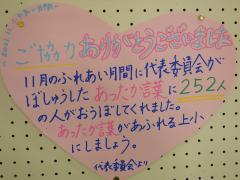 ご協力ありがとうございました
11月のふれあい月間に代表委員会が
ぼしゅうしたあったか言葉に252人
の人がおうぼしてくれました。
あったか言葉があふれる上小
にしましょう。
代表委員会より